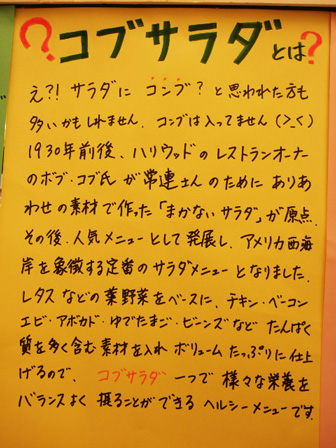 ?コブサラダとは?
え?! サラダに コンブ? と思われた方も
多いかもしれません。コンブは入ってません(>_<)
1930年前後、ハリウッドの レストランオーナー
のボブ・コブ氏 が 常連さん のために ありあ
わせの素材で作った「まかないサラダ」が原点。
その後、人気メニューとして 発展し、アメリカ西海
岸を象徴する定番の サラダメニュー となりました。
レタス などの葉野菜をベースに、チキン・ベーコン
エビ・アボカド・ゆでたまご・ビーンズなど たんぱく
質を多く含む素材を入れ ボリューム たっぷりに仕上
げるので、 コブサラダ 一つで 様々な栄養を
バランスよく 摂ることができる ヘルシーメニューです。